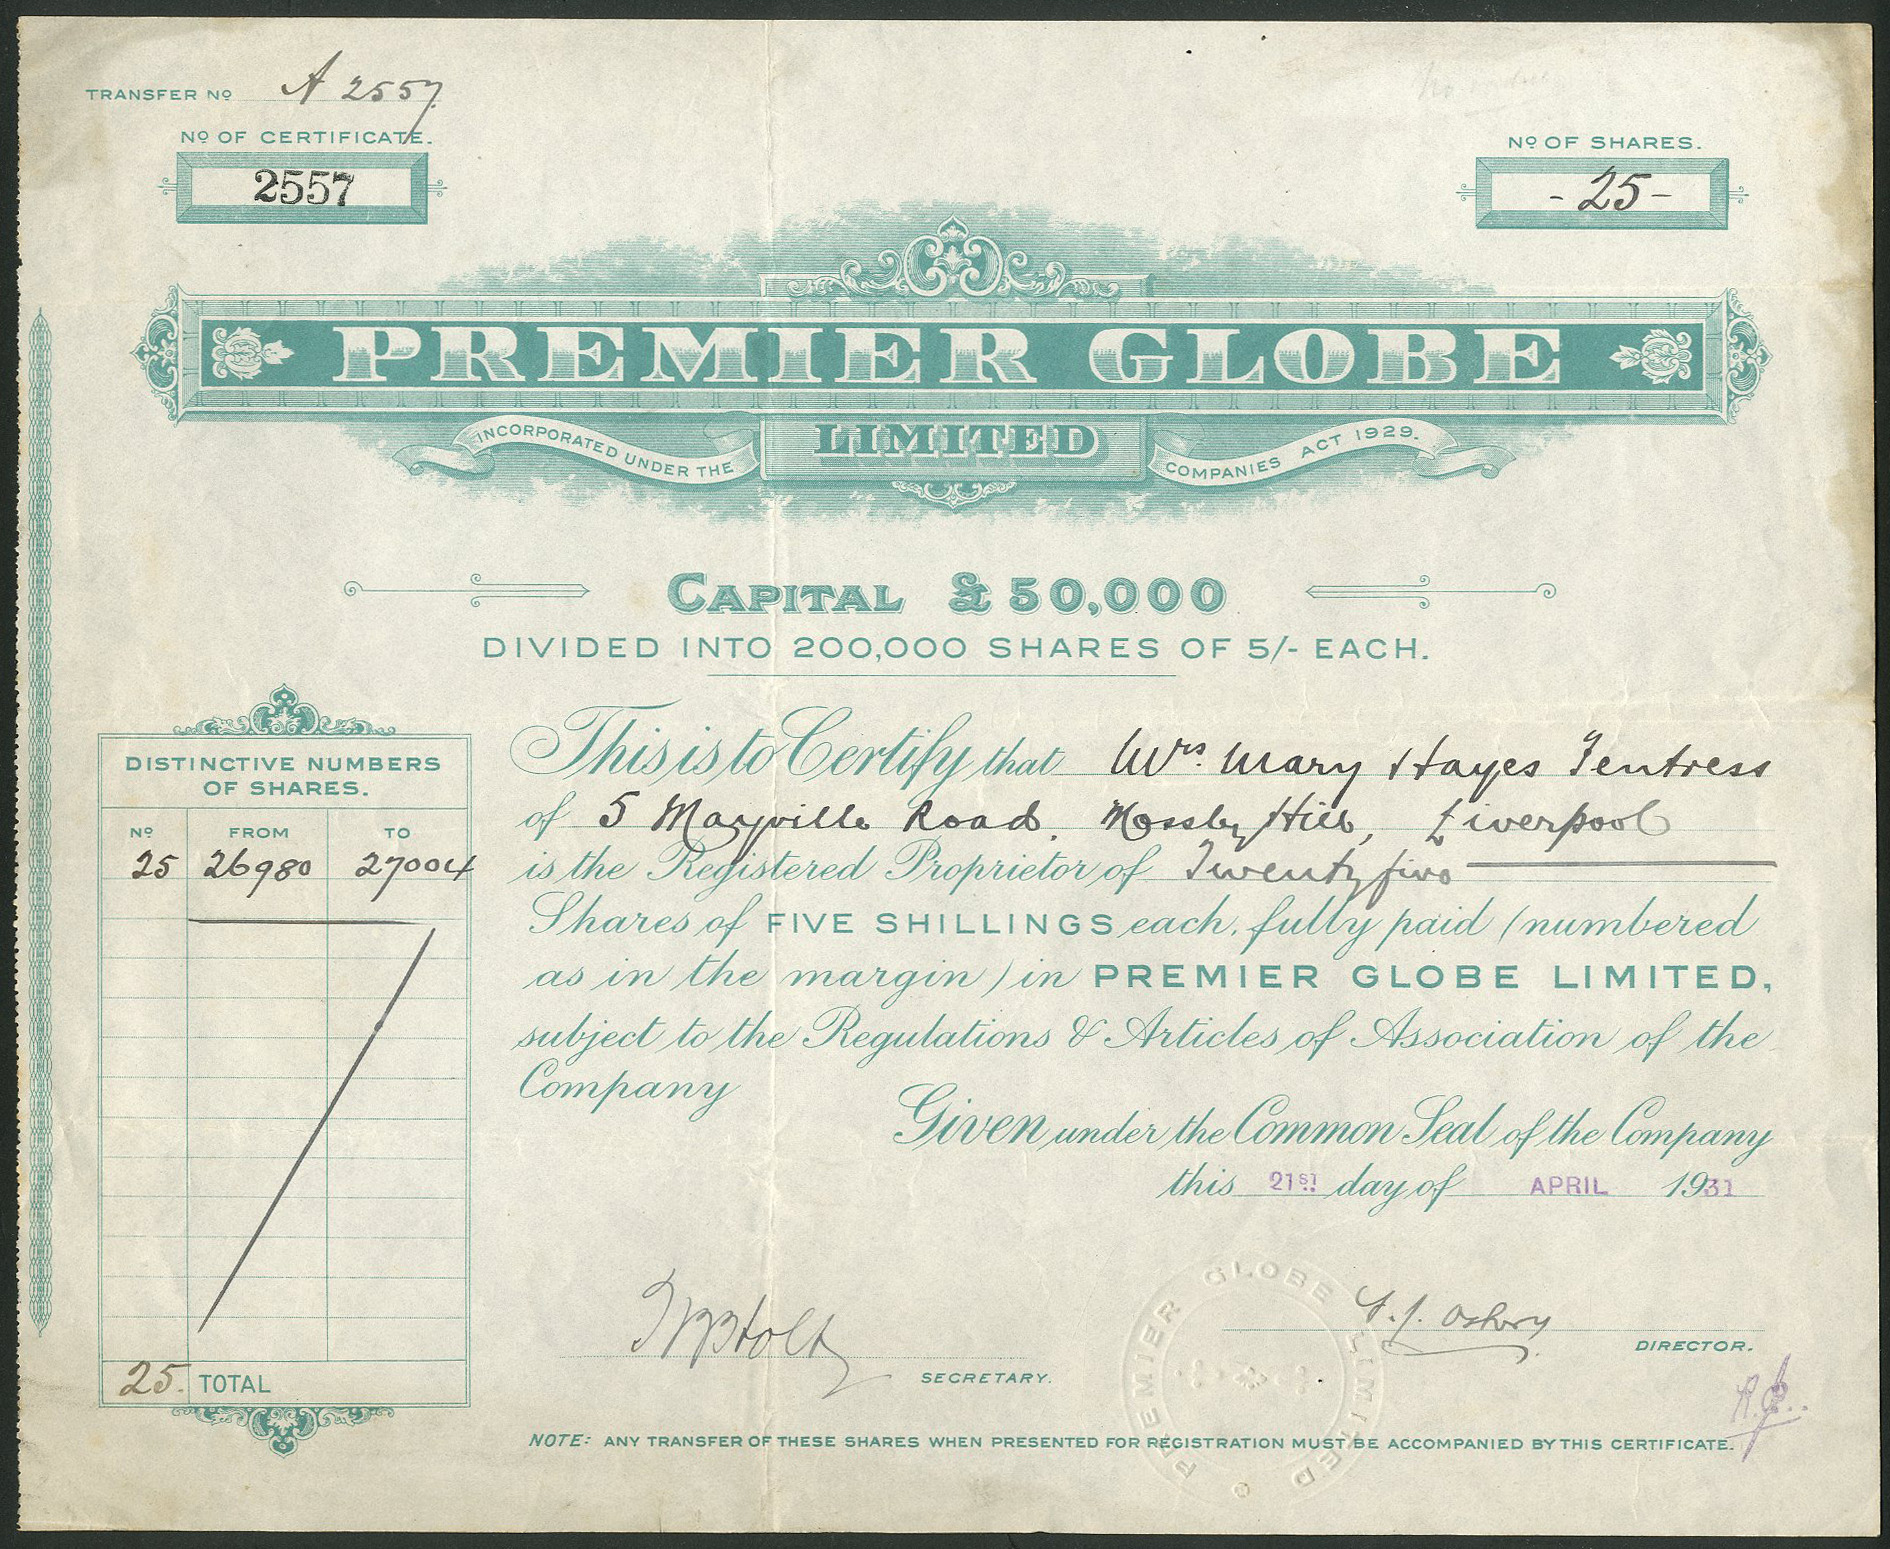 TRANSFER Nº A 2557
Nº OF CERTIFICATE.
2557
Nº OF SHARES.
- 25 -
PREMIER GLOBE
LIMITED
INCORPORATED UNDER THE COMPANIES ACT 1929.
CAPITAL £50,000
DIVIDED INTO 200,000 SHARES OF 5/- EACH.
DISTINCTIVE NUMBERS
OF SHARES.
Nº FROM TO
25 26980 27004
25. TOTAL
This is to Certify that Mrs. Mary Hayes Fentress
of 5 Mayville Road, Mossley Hill, Liverpool
is the Registered Proprietor of Twenty five
Shares of FIVE SHILLINGS each, fully paid (numbered
as in the margin) in PREMIER GLOBE LIMITED,
subject to the Regulations & Articles of Association of the
Company
Given under the Common Seal of the Company
this 21ST day of APRIL 1931
Holt
SECRETARY.
DIRECTOR.
PREMIER GLOBE LIMITED
NOTE: ANY TRANSFER OF THESE SHARES WHEN PRESENTED FOR REGISTRATION MUST BE ACCOMPANIED BY THIS CERTIFICATE.